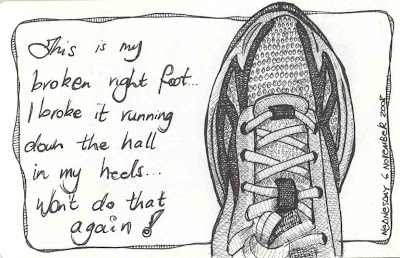 This is my
broken right foot...
I broke it running
down the hall
in my heels...
Won't do that
again!
WEDNESDAY 6 NOVEMBER